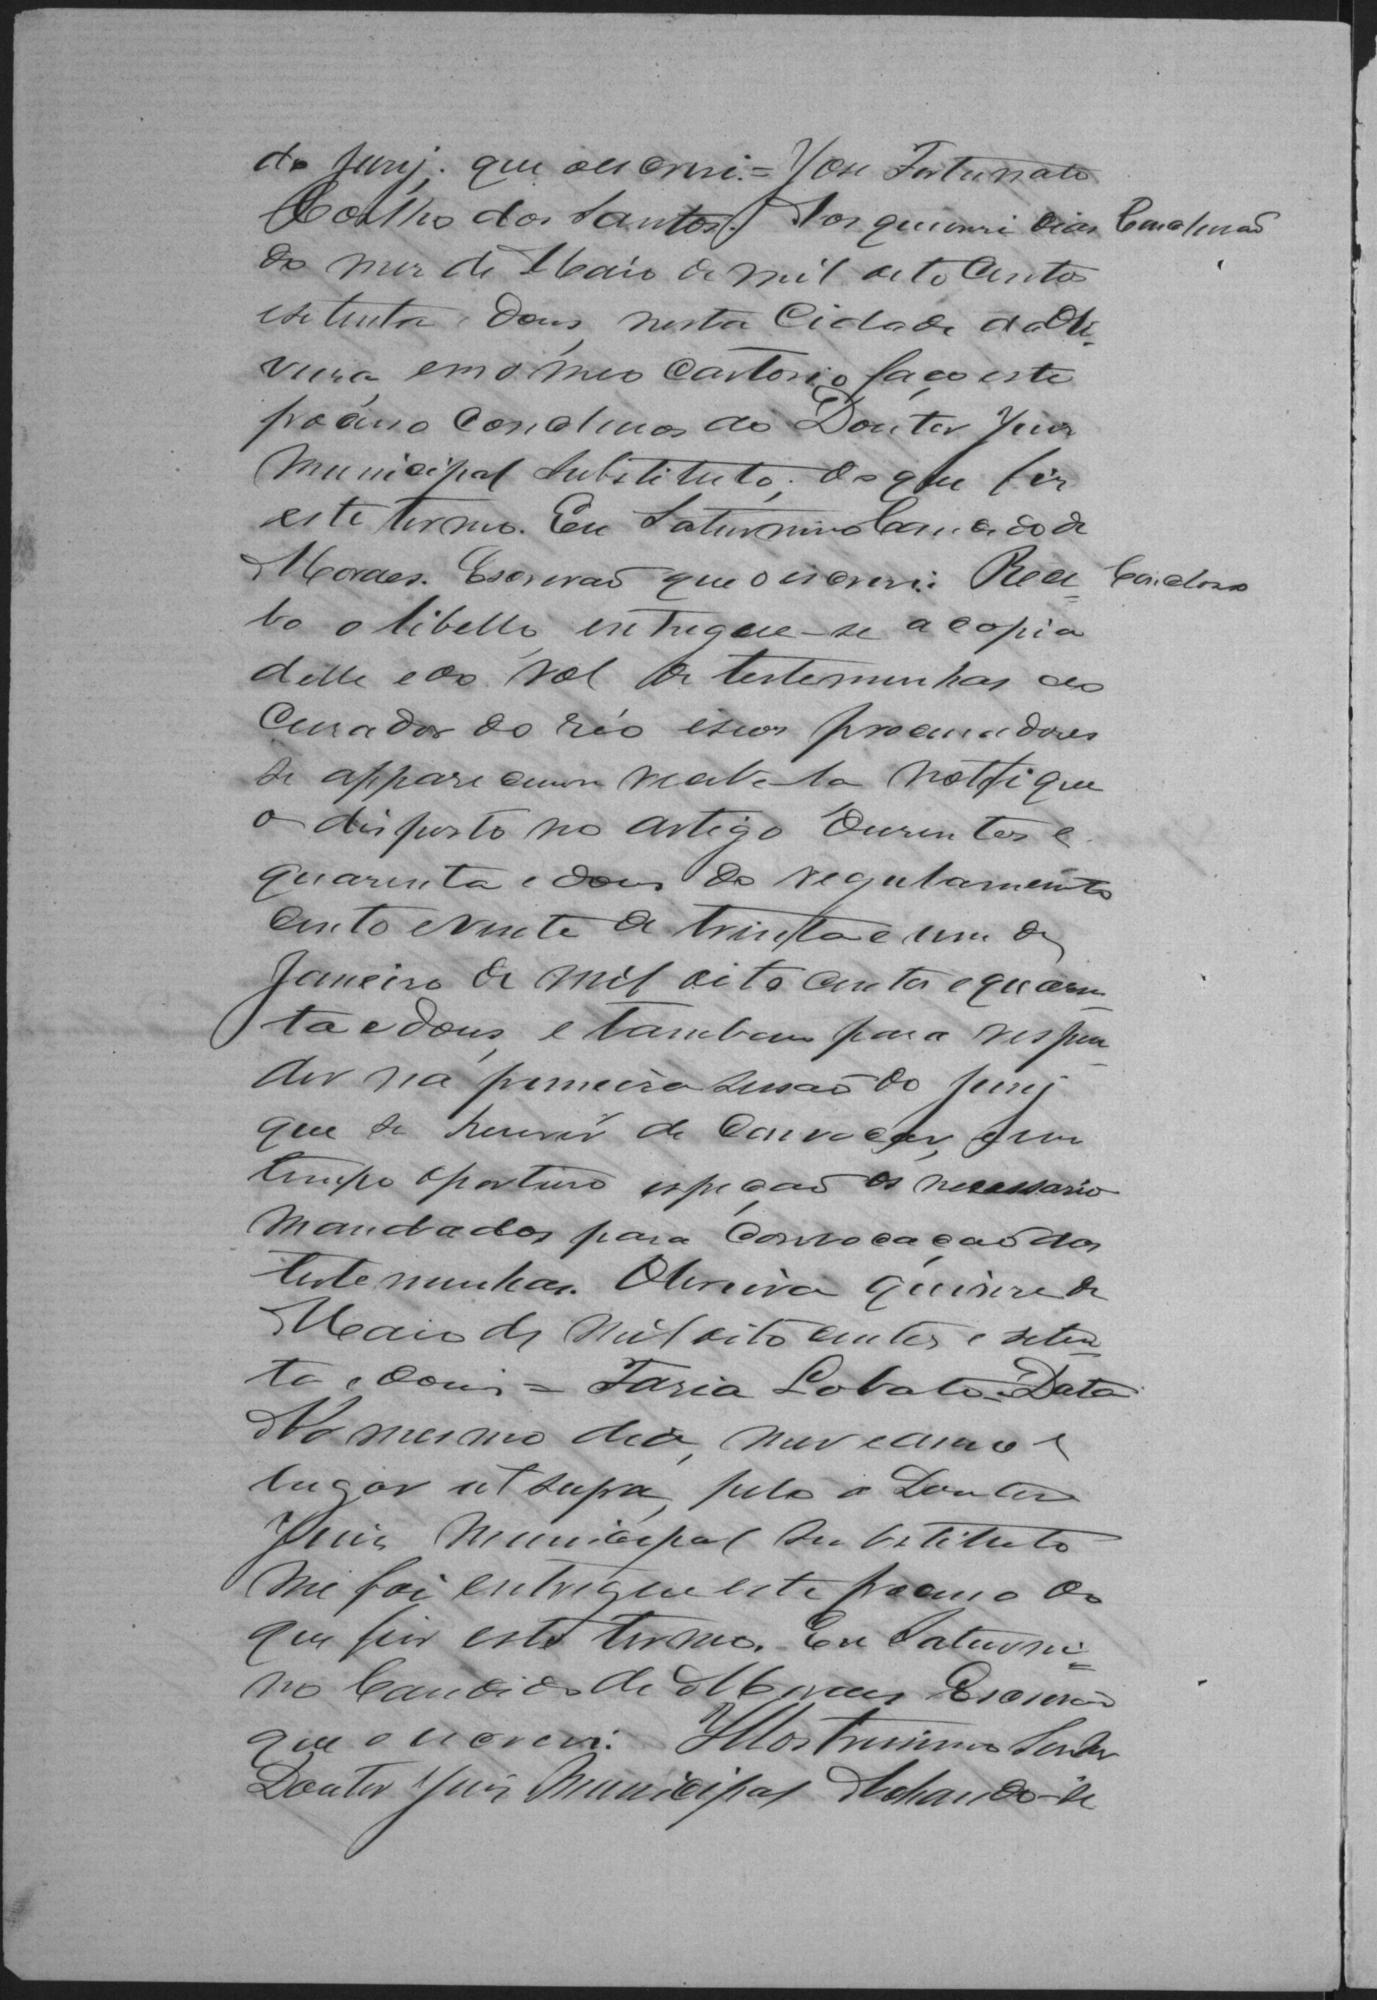 do Jury. que o escrevi. = Jose Fortunato
Coelho dos Santos. Aos quinse dias Conclusaõ
do mez de Maio de mil oito centos
e setenta e dous, nesta Cidade da Oli-
veira em o meo Cartorio, faço este
processo Conclusos ao Doutor Juiz
Municipal Substituto; do que fiz
este termo. Eu Saturnino Candido de
Moraes. Escrivaõ que o escrevi: Rece- Concluso
bo o libello, entregue-se a copia
delle e do rol de testemunhas ao
Curador do réo e seus procuradores
se apparecerem recebe-la notifique
o disposto no artigo Durentos e
quarenta e dous do regulamento
cento e vinte de trinta e um de
Janeiro de mil oito centos e quaren-
ta e dous, e tambem para respon-
der na primeira sessaõ do Jury
que se houver de convocar, e em
tempo oportuno espeçaõ os necessario
mandados para convocaçaõ das
testemunhas. Oliveira quinse de
Maio de mil oito centos e seten-
ta e dous = Faria Lobato = Data
No mesmo dia, mez e anno e
lugar ut supra, pelo o Doutor
Juiz Municipal substituto
me foi entregue este processo do
que fiz este termo. Eu Saturni-
no Candido de Moraes Escrivaõ
que o escrevi: Illostrissimo Senhor
Doutor Juiz Municipal Achando-se